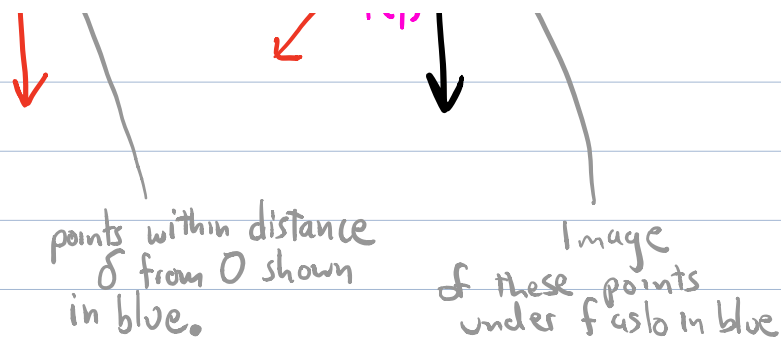 points within distance
δ from 0 shown
in blue.
Image
of these points
under f aslo in blue